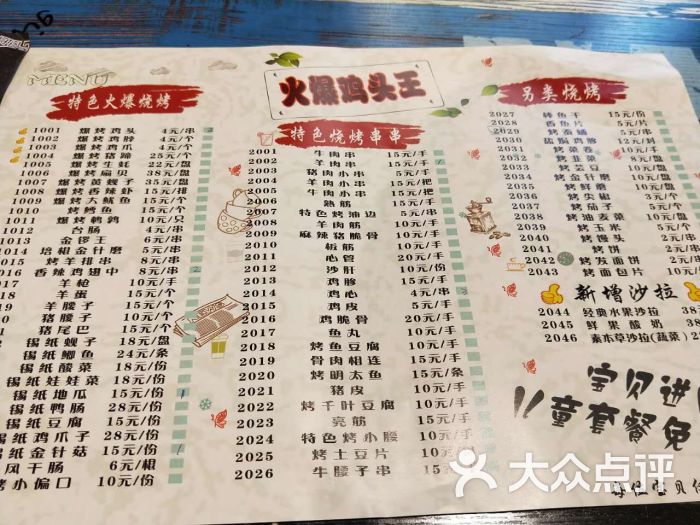 MENU
火爆鸡头王
特色火爆烧烤
1001 爆烤鸡头 4元/串
1002 爆烤鸡脖 4元/个
1003 爆烤鸡爪 4元/个
1004 爆烤猪蹄 25元/个
1005 爆烤生蚝 22元/盘
1006 爆烤扇贝 38元/盘
1007 爆烤蚬子 35元/盘
1008 爆烤香辣虾 15元/串
1009 爆烤大鱿鱼 15元/个
1010 烤鳕鱼 15元/个
1011 爆烤鹌鹑 10元/只
1012 台肠 4元/串
1013 金锣王 6元/串
1014 培根金针磨 5元/串
1015 烤羊排串 8元/串
1016 香辣鸡翅中 8元/串
1017 羊枪 10元/手
羊蛋 15元/个
羊腰子 15元/个
猪腰子 10元/个
猪尾巴 15元/个
锡纸蚬子 18元/盘
锡纸鲫鱼 24元/条
锡纸酸菜 18元/份
锡纸娃娃菜 18元/份
锡纸地瓜 15元/份
锡纸鸭肠 28元/份
锡纸豆腐 15元/份
锡纸鸡爪子 28元/份
锡纸金针菇 15元/份
风干肠 6元/根
烤小偏口 10元/份
特色烧烤串串
2001 牛肉串 15元/手
2002 羊肉串 15元/手
2003 猪肉小串 15元/手
2004 羊肉小串 15元/把
2005 牛肉小串 15元/把
2006 熟筋 15元/手
2007 特色烤油边 5元/串
2008 羊肉筋 15元/手
2009 麻辣猪脆骨 10元/手
2010 板筋 10元/手
2011 心管 20元/手
2012 沙肝 10元/份
2013 鸡胗 15元/手
2014 鸡心 4元/串
2015 鸡皮 5元/手
2016 鸡脆骨 20元/手
2017 鱼丸 10元/手
2018 烤鱼豆腐 10元/手
2019 骨肉相连 15元/手
2020 烤明太鱼 15元/条
2021 猪皮 10元/手
2022 烤千叶豆腐 10元/手
2023 亮筋 15元/手
2024 特色烤小腰 10元/手
2025 烤土豆片 10元/手
2026 牛腰子串 15元/手
另类烧烤
2027 蚌鱼干 15元/份
2028 香鱼片 5元/片
2029 烤面铺 5元/串
2030 盐焗鸡胗 15元/手
2031 烤菜卷 10元/手
2032 烤韭菜 8元/盘
2033 烤芸豆 10元/盘
2034 烤金针磨 10元/盘
2035 烤鲜蘑 10元/盘
2036 烤尖椒 3元/个
2037 烤茄子 5元/个
2038 烤油麦菜 10元/盘
2039 烤玉米 5元/个
2040 烤馒头 2元/串
2041 烤饼 5元/串
2042 烤发面饼 5元/串
2043 烤面包片 10元/手
新增沙拉
2044 经典水果沙拉 38
2045 鲜果酸奶 38
2046 素本草沙拉(蔬菜)
宝贝进
儿童套餐免
大众点评